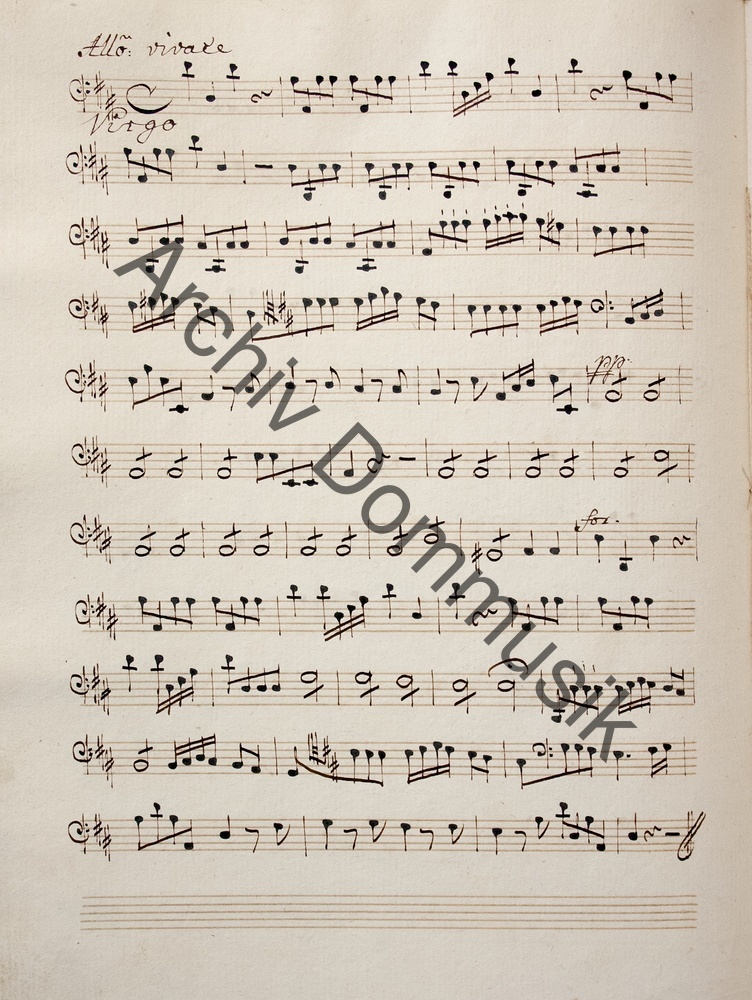 Allõ: vivace
Virgo
pp:
for.
Archiv Dommusik